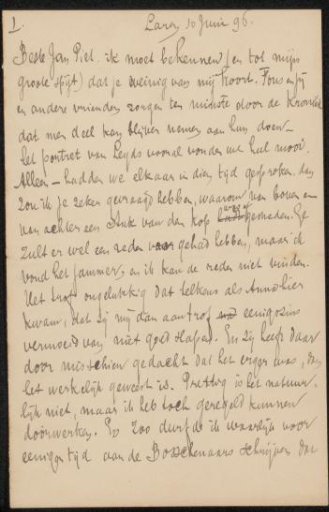 1.
Laren 10 Juni 96.
Beste Jan Piet. ik moet bekennen (en tot mijn
groote spijt) dat je weinig van mij hoort. Fons en jij
en andere vrienden zorgen ten minste door de Kroniek
dat men deel kan blijven nemen aan hun doen
het portret van vooral vonden we heel mooi.
Alleen - hadden we elkaar in dien tijd gesproken, dan
zou ik je zeker gevraagd hebben, waarom van boven en
van achter een stuk van den kop gesneden. Ge
zult er wel een reden voor gehad hebben, maar ik
vond het jammer, en ik kan de reden niet vinden.
Het trof ongelukkig dat telkens als Anna hier
kwam, dat zij mij dan aantrof eenigszins
vermoeid van niet goed slapen. En zij heeft daar
door misschien gedacht dat het erger was, dan
het werkelijk geweest is. Prettig is het natuur-
lijk niet, maar ik heb toch geregeld kunnen
doorwerken. En zoo durfde ik waarlijk voor
eenigen tijd aan de Bosschenaars schrijven dat